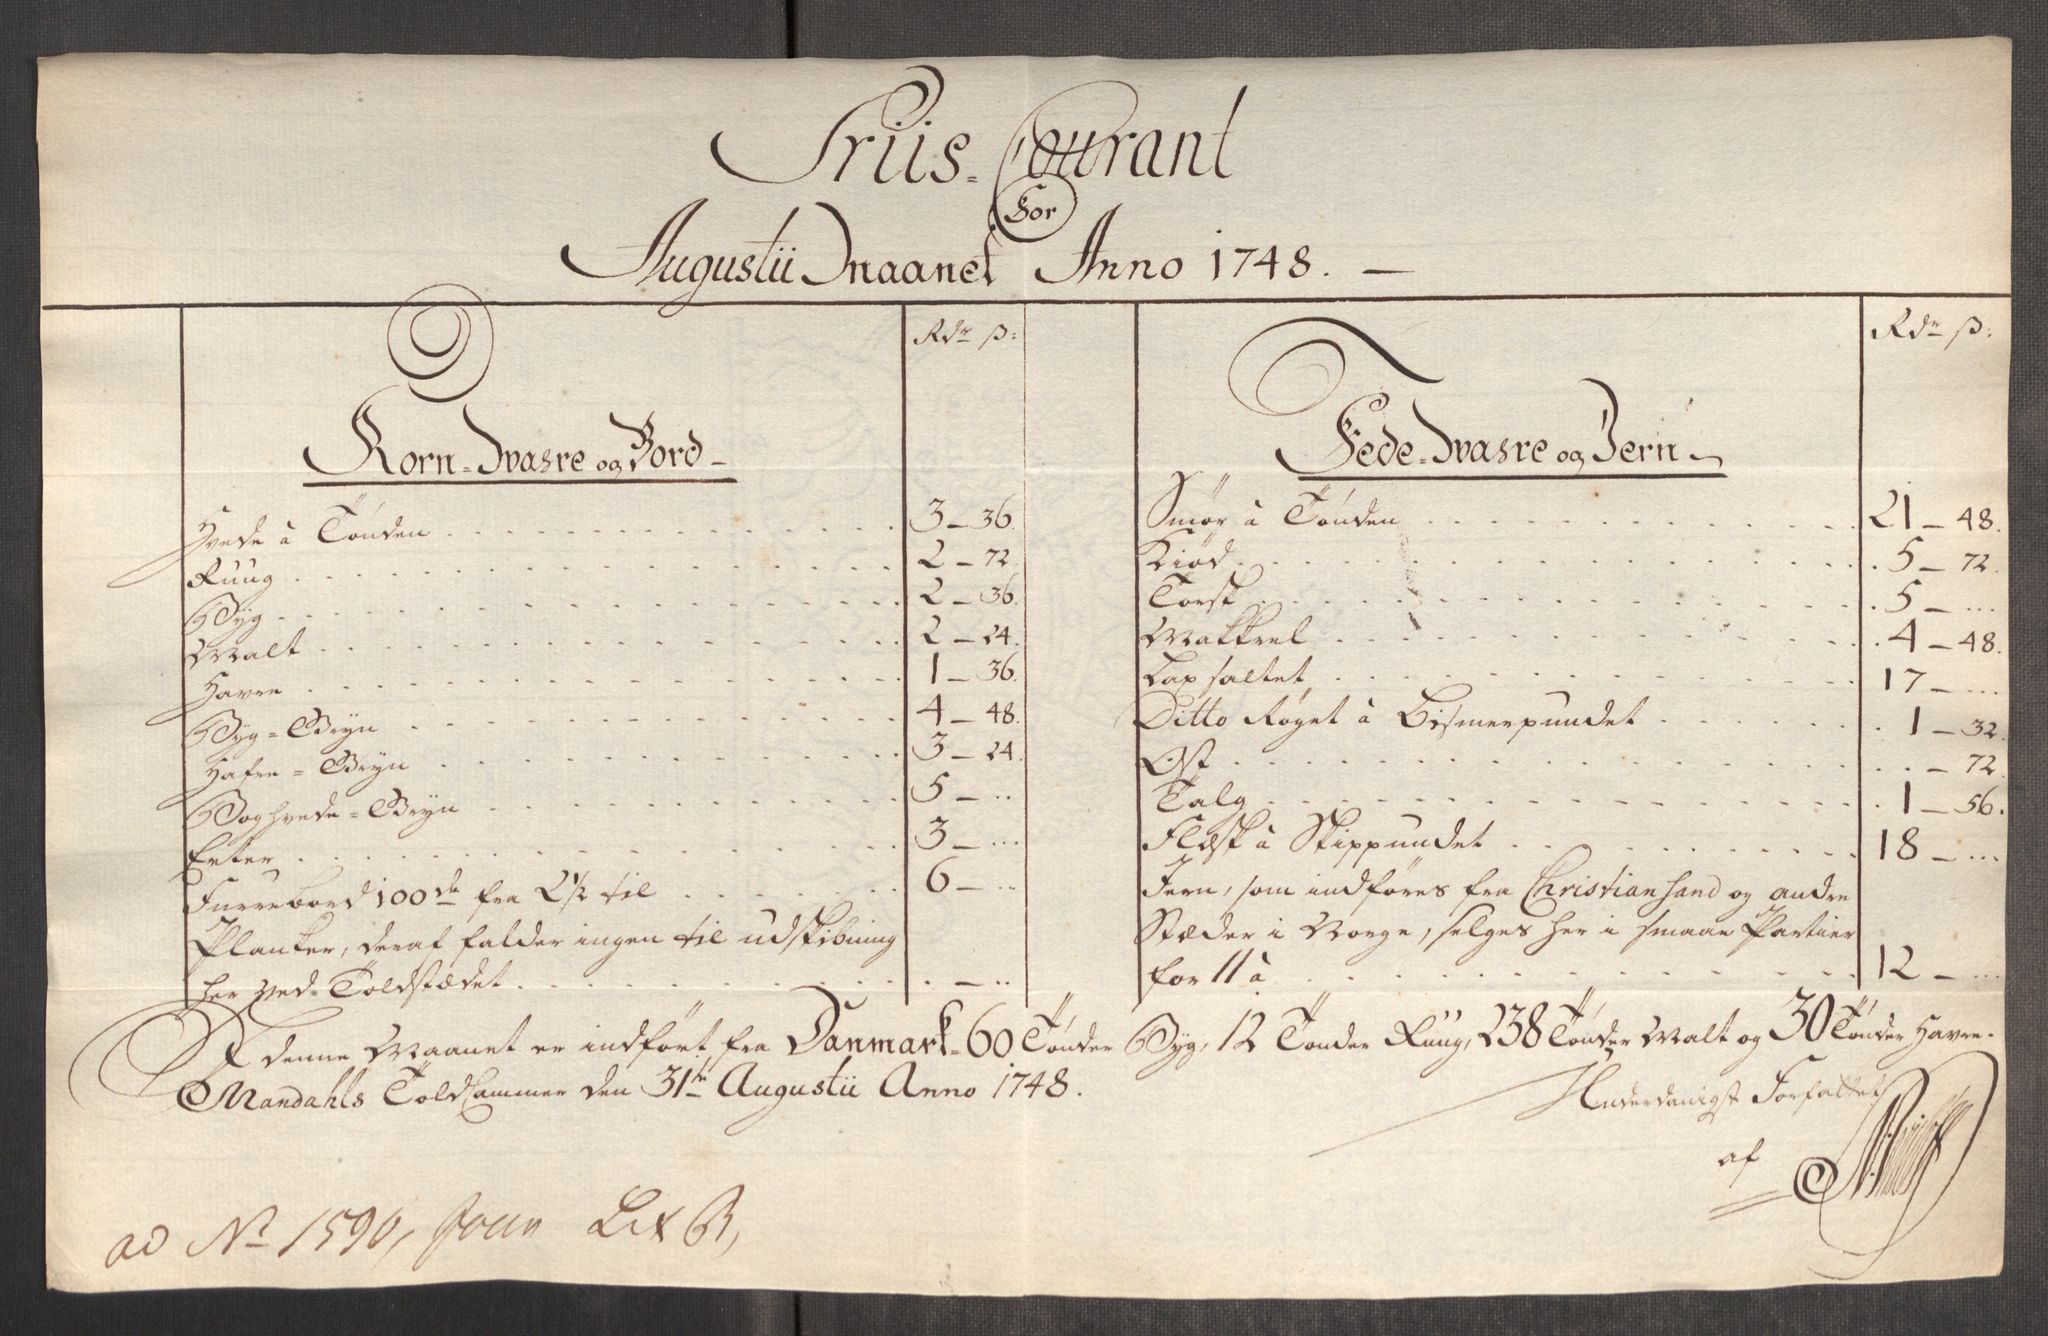 Priis-Courant
For
Augustii Maanet Anno 1748. —
Rdr ß:
Korn-Wahre og Bord-
Hvede à Tønden 3 — 36.
Ruug 2 — 72.
Byg 2 — 36.
Malt 2 — 24.
Havre 1 — 36.
Byg-Gryn 4 — 48.
Hafre-Gryn 3 — 24.
Boghvede-Gryn 5 — ..
Erter 3 — ...
Furrebord 100de fra 2½ til 6 — ..
Planker, deraf falder ingen til udskibning
her ved Toldstædet . — ..
Rdr ß:
Fede-Wahre og Jern
Smør à Tønden 21 — 48.
Kiød 5 — 72.
Torsk 5 — ...
Makkrel 4 — 48.
Lax saltet 17 — ...
Ditto Røget à Bismerpundet 1 — 32.
Ost . — 72.
Talg 1 — 56.
Flæsk à Skippundet 18 — ...
Jern, som indføres fra Christiansand og andre
Stæder i Norge, selges her i smaae Partier
for 11 à 12 — ...
I denne Maanet er indført fra Danmark-60 Tønder Byg, 12 Tønder Ruug, 238 Tønder Malt og 30 Tønder Havre.
Mandahls Toldkammer den 31te Augustii Anno 1748.
Underdanigst Forfattet
af
ad No 1590, Jour Lit B,